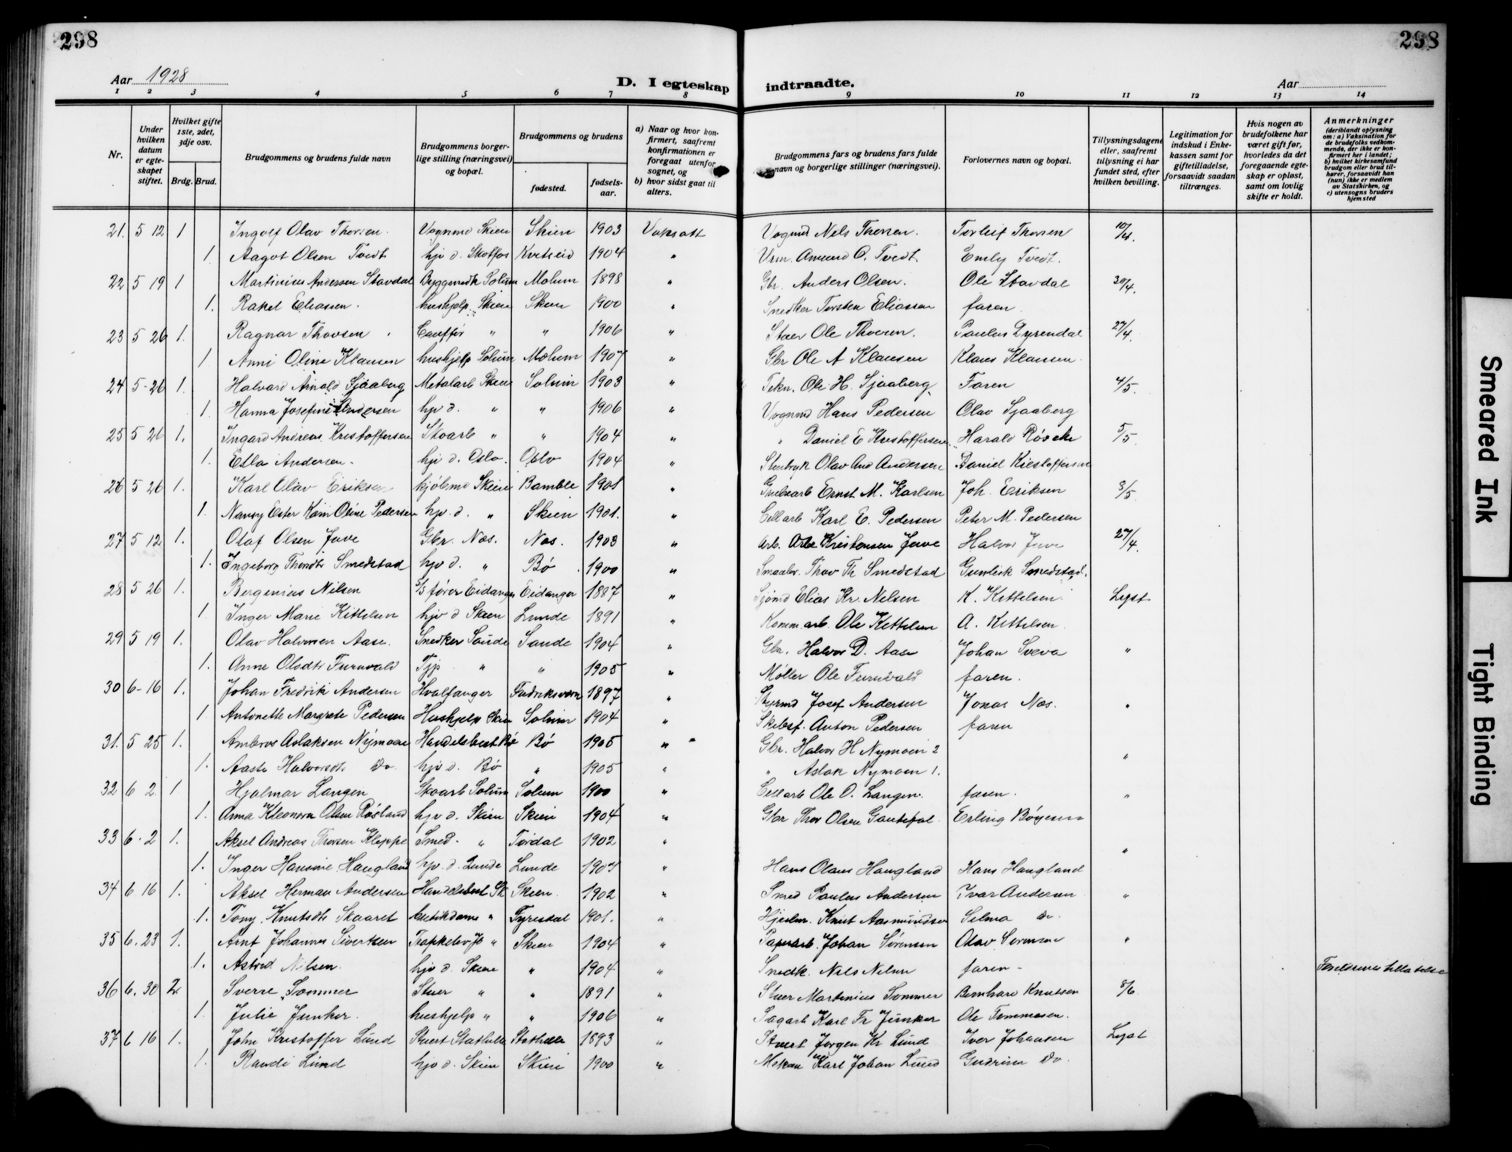 298
298
Aar 1928
D. I egteskap indtraadte.
Aar
1 2 3 4 5 6 7 8 9 10 11 12 13 14
Nr.
Under hvilken datum er egteskapet stiftet.
Hvilket gifte 1ste, 2det, 3dje osv.
Brdg. Brud.
Brudgommens og brudens fulde navn
Brudgommens borgerlige stilling (næringsvei) og bopæl.
Brudgommens og brudens
fødested.
fødselsaar.
a) Naar og hvor konfirmert, saafremt konfirmationen er foregaat utenfor sognet, og
b) hvor sidst gaat til alters.
Brudgommens fars og brudens fars fulde navn og borgerlige stillinger (næringsvei).
Forlovernes navn og bopæl.
Tillysningsdagene eller, saafremt tillysning ei har fundet sted, efter hvilken bevilling.
Legitimation for indskud i Enkekassen samt for giftetilladelse, forsaavidt saadan tiltrænges.
Hvis nogen av brudefolkene har været gift før, hvorledes da det foregaaende egteskap er opløst, samt om lovlig skifte er holdt.
Anmerkninger
(deriblandt oplysning om: a) Vaksination for de brudefolks vedkommende, der ikke er konfirmert her i landet; b) hvilket kirkesamfund brudgom eller brud tilhører, forsaavidt han (hun) ikke er medlem av Statskirken, og c) utensogns bruders hjemsted
21. 5 12 1 Ingolf Olav Thorsen Vognmd Skien Skien 1903 Vognmd Nels Thorsen Torleif Thorsen
1. Aagot Olsen Tvedt hjv d. Skotfos Kvitseid 1904 " O. Tvedt Emily Tvedt
22 5 19 1 Martinius Andersen Stavdal Solum Melum 1898 " Gbr. Anders Olsen. Ole Stavdal 30/4.
1. Rakel Eliassen hushjelp Skien Skien 1900 " Snedker Torsten Eliassen faren.
23 5 26 1. Ragnar Thorsen " " 1906 " Ole Thorsen 27/4
1 Anni Oline Klausen hushjelp Solum Melum 1907 " Gbr Ole A Klausen Klaus Klausen
24 5-26 1. Halvard Arnold Sjaaberg Metalarb Skien Solum 1903 " Ole H. Sjaaberg Faren 4/5.
1. Hanna Josefine Andersen hjv d. " " 1906 " Vognmd Hans Pedersen Olav Sjaaberg
25 5 26 1. Ingard Andreas Kristoffersen Skoarb " " 1904 " " Daniel E Kristoffersen Harald 5/5.
1. Ella Andersen. hjv d. Oslo. Oslo 1904 " Olav And Andersen Daniel Kristoffersen
26 5 26 1. Karl Olav Eriksen Skien Bamble 1901 " Ernst M. Karlsen Joh. Eriksen 3/5
1. Nancy Ester Karin Oline Pedersen hjv. d. " Skien 1901. " Cellarb Karl E. Pedersen Peter M. Pedersen
27 5 12 1. Olaf Olsen Juve Gbr. Nes. Nes. 1903 " Arb. Kristensen Juve Halvor Juve 27/4.
1. Ingeborg Thordtr Smedstad hjv d. " Bø 1900 " Smaabr. Thov Th Smedstad Gunleik Smedstad.
28 5 26 1. Bergenius Nilsen Eidanger Eidanger 1887 " Sjømd Elias Kr. Nelsen K. Kittelsen Lyst
1 Inger Marie Kittelsen hjv d Skien Lunde 1891 " Komm arb. Ole Kittelsen A. Kittelsen.
29 5 19 1. Olav Halvorsen Aase. Snedker Saude Saude 1904 " Gbr. Halvor D. Aase Johan Sveva "
1. Anne Olsdtr Furuvald Tjp. " " 1905 " Møller Ole Furuvald faren.
30 6-16 1. Johan Fredrik Andersen Hvalfanger Fredriksvern 1897 " Styrmd Josef Andersen Jonas Nes. "
1 Antonette Margrete Pedersen Hushjelp Skien Solum 1904 " Anton Pedersen faren
31. 5 25 1. Ambros Aslaksen Nymoen Bø Bø 1905 " " Gbr. Halvor H Nymoen 2 "
1. Aaste Halvorsdtr Do. hjv d. Bø " 1905 " " Aslak Nymoen 1.
32 6 2. 1 Hjalmar Langen Skoarb Solum Solum 1900 " Cellarb Ole O. Langen. faren. "
1. Anna Kleonora Olsen Røsland hjv d. Skien Skien 1904 " Gbr Thor Olsen Erling Bøgesen
33 6-2 1. Aksel Andreas Thorsen Kleppe Smed. " Tørdal 1902 " "
1. Inger Haugland hjv. d. Lunde Lunde 1907 " Hans Olaus Haugland Hans Haugland
34 6 16 1. Aksel Herman Andersen Sk Skien 1902 " Smed Paulus Andersen Ivar Andersen "
1. Tony Knutsdtr Skaaret " Fyresdal 1901. " Knut Aasmundsen Selma Do.
35 6.23 1. Arnt Johannes Sivertsen " Skien 1904 " Paperarb. Johan Sørensen Olav Sørensen "
1. Astrid Nilsen. hjv d. Skien " 1904 " Snedk. Nils Nilsen faren.
36 6.30 2. Sverre Sommer Stuer " " 1891 " Stuer Martinius Sommer Bernhard Knutsen 8/6
1. Julie Junker. hushjelp " " 1906 " Sagarb Karl Fr Junker Ole Tommesen.
37 6 16 1. John Kristoffer Lund Stuert Stathelle Stathelle 1893 " Stuert Jørgen Kr Lund Iver Johansen Lyst
1. Randi Lund hjv d. Skien Skien 1900 " Karl Johan Lund Gudrun Do.
Smeared Ink
Tight Binding